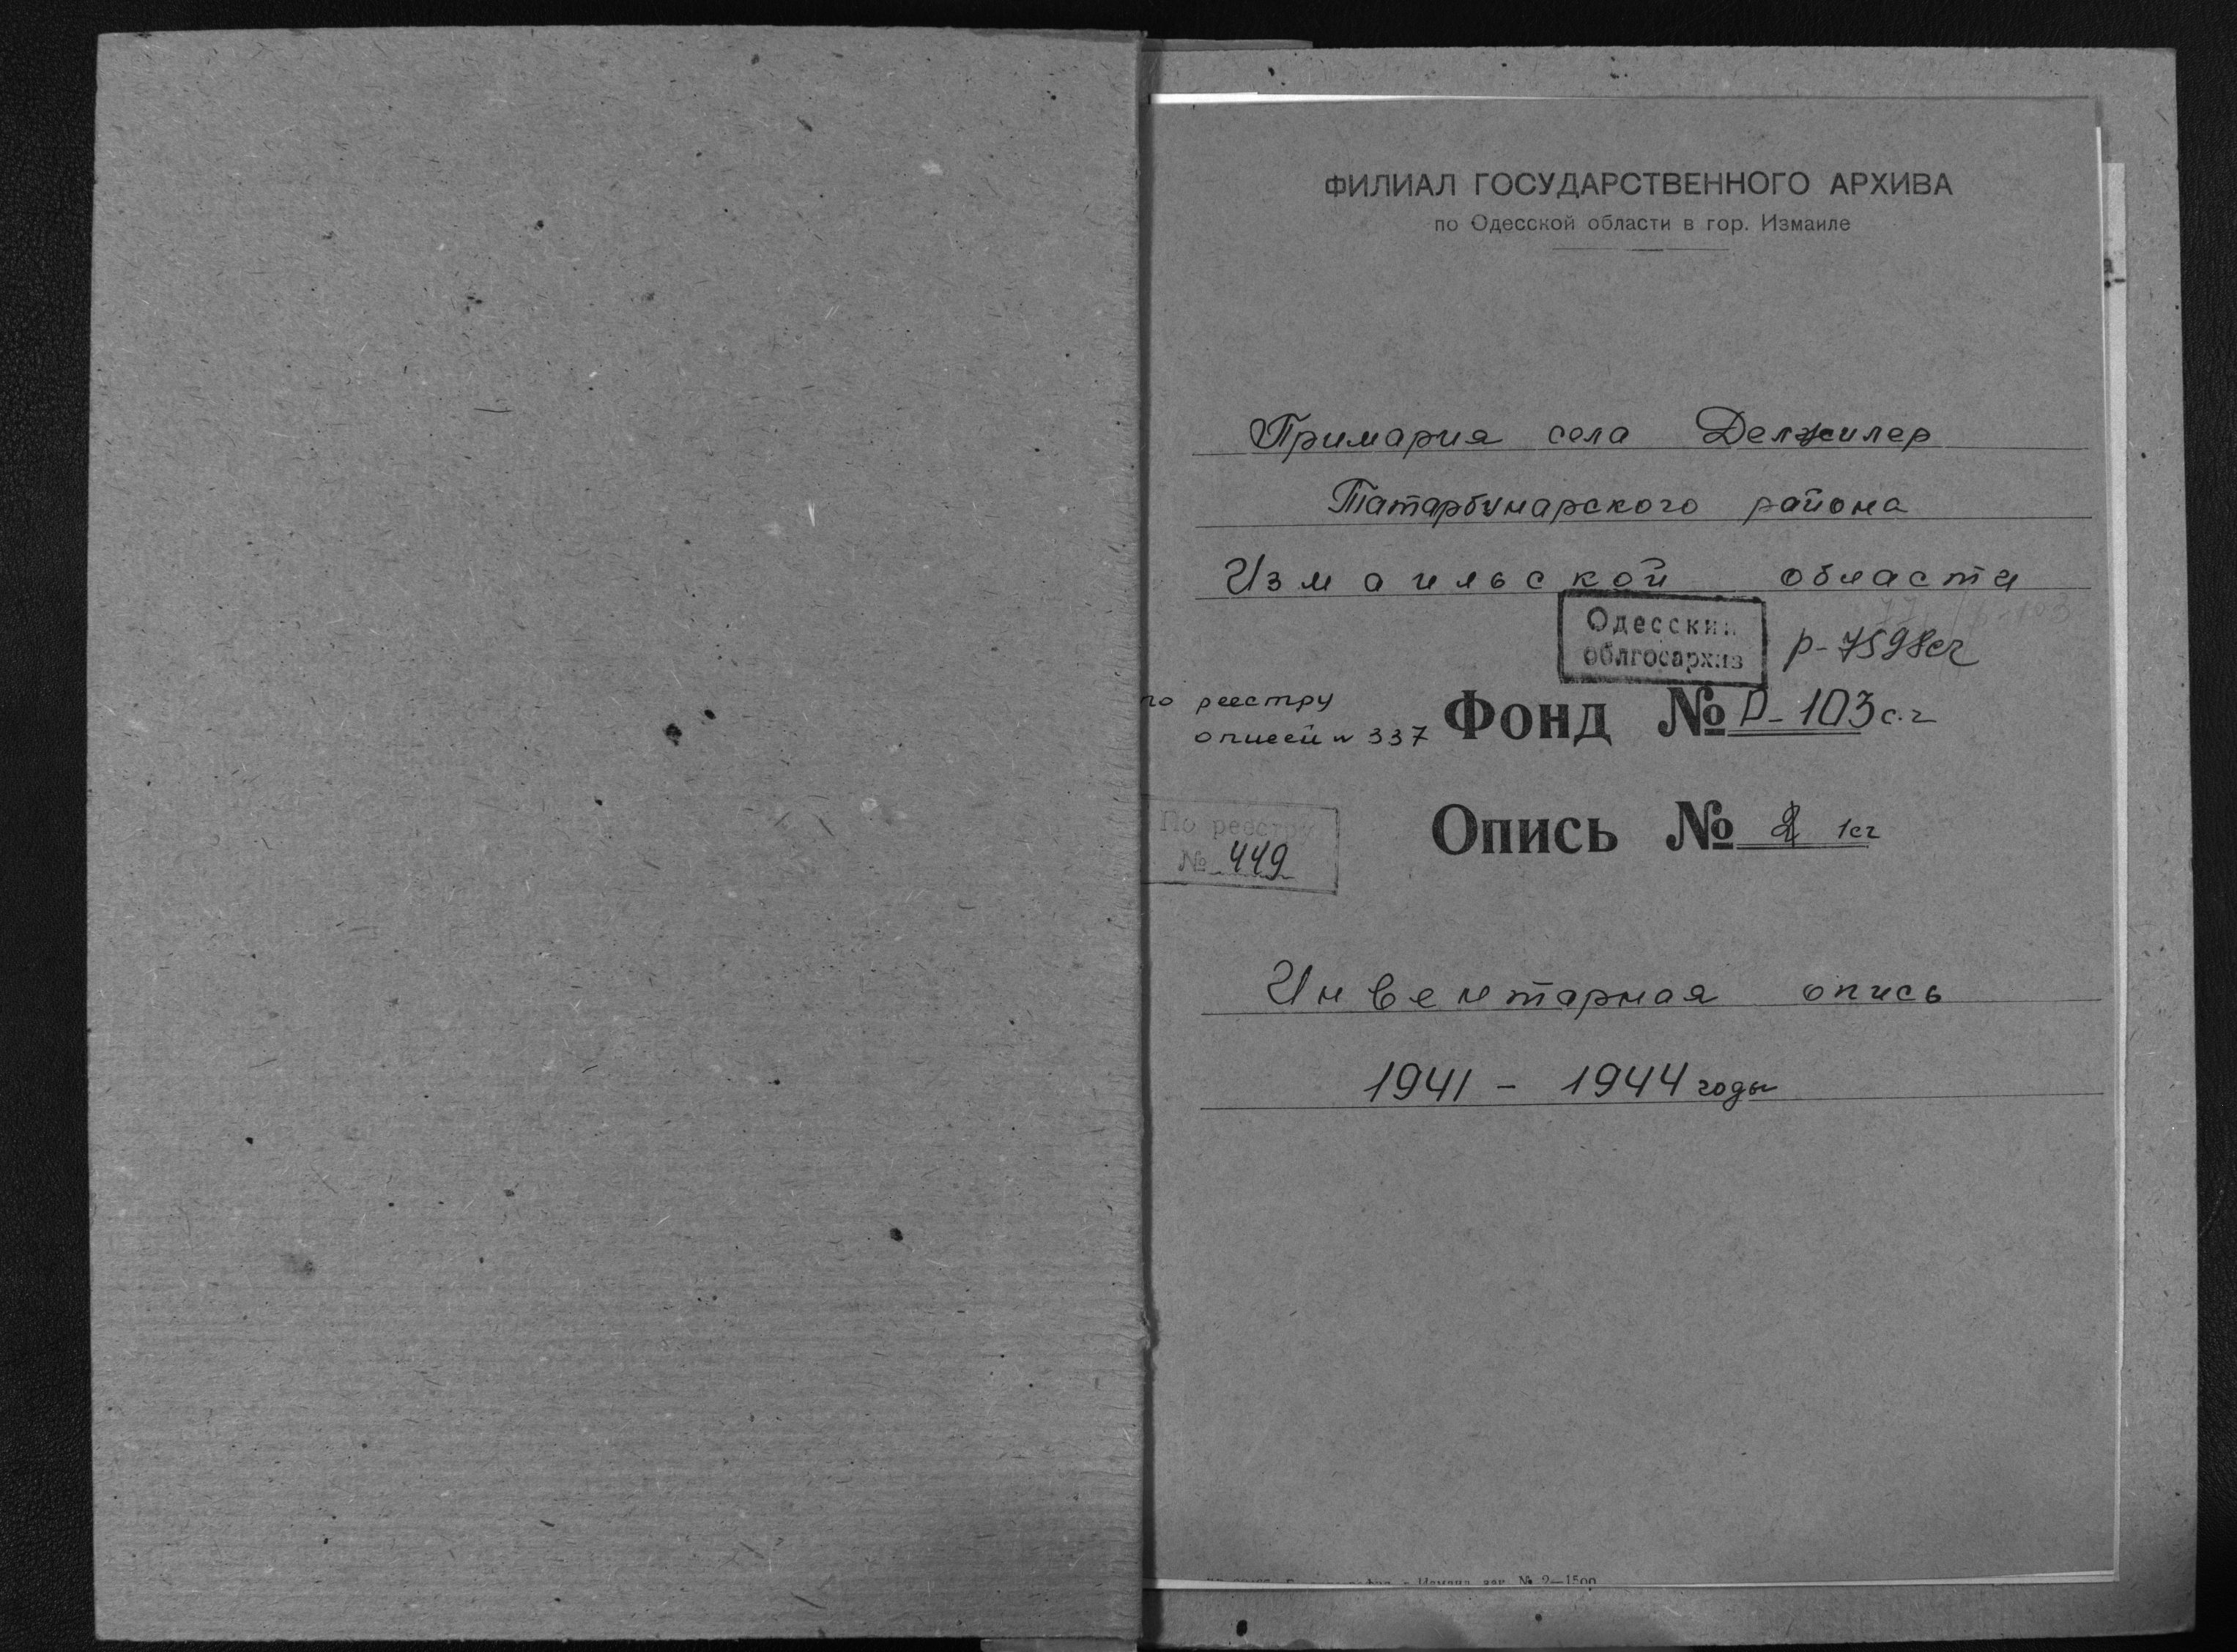 ФИЛИАЛ ГОСУДАРСТВЕННОГО АРХИВА
по Одесской области в гор. Измаиле
Примария села Делжилер
Татарбунарского района
Измаильской области
Одесский
облгосархив
р-7598сг
по реестру
описей № 337
Фонд № Р-103 с.г
Опись № 2 1сг
По реестру
№ 449
Инвентарная опись
1941 - 1944 годы
зак. № 2—1500